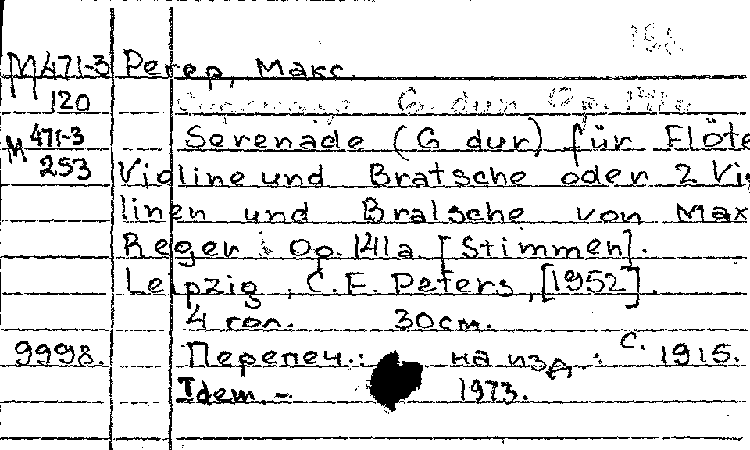 198.
М471-3 Регер, Макс.
120 Серенада G dur Op. 141a
М 471-3 Serenade (G dur) für Flöte
253 Violine und Bratsche oder 2 Vio
linen und Bralsche von Max
Reger. Op. 141a [Stimmen].
Leipzig, C. F. Peters, [1952].
4 гол. 30см.
9998. Перепеч.: на изд. с. 1915.
Idem. - 1973.